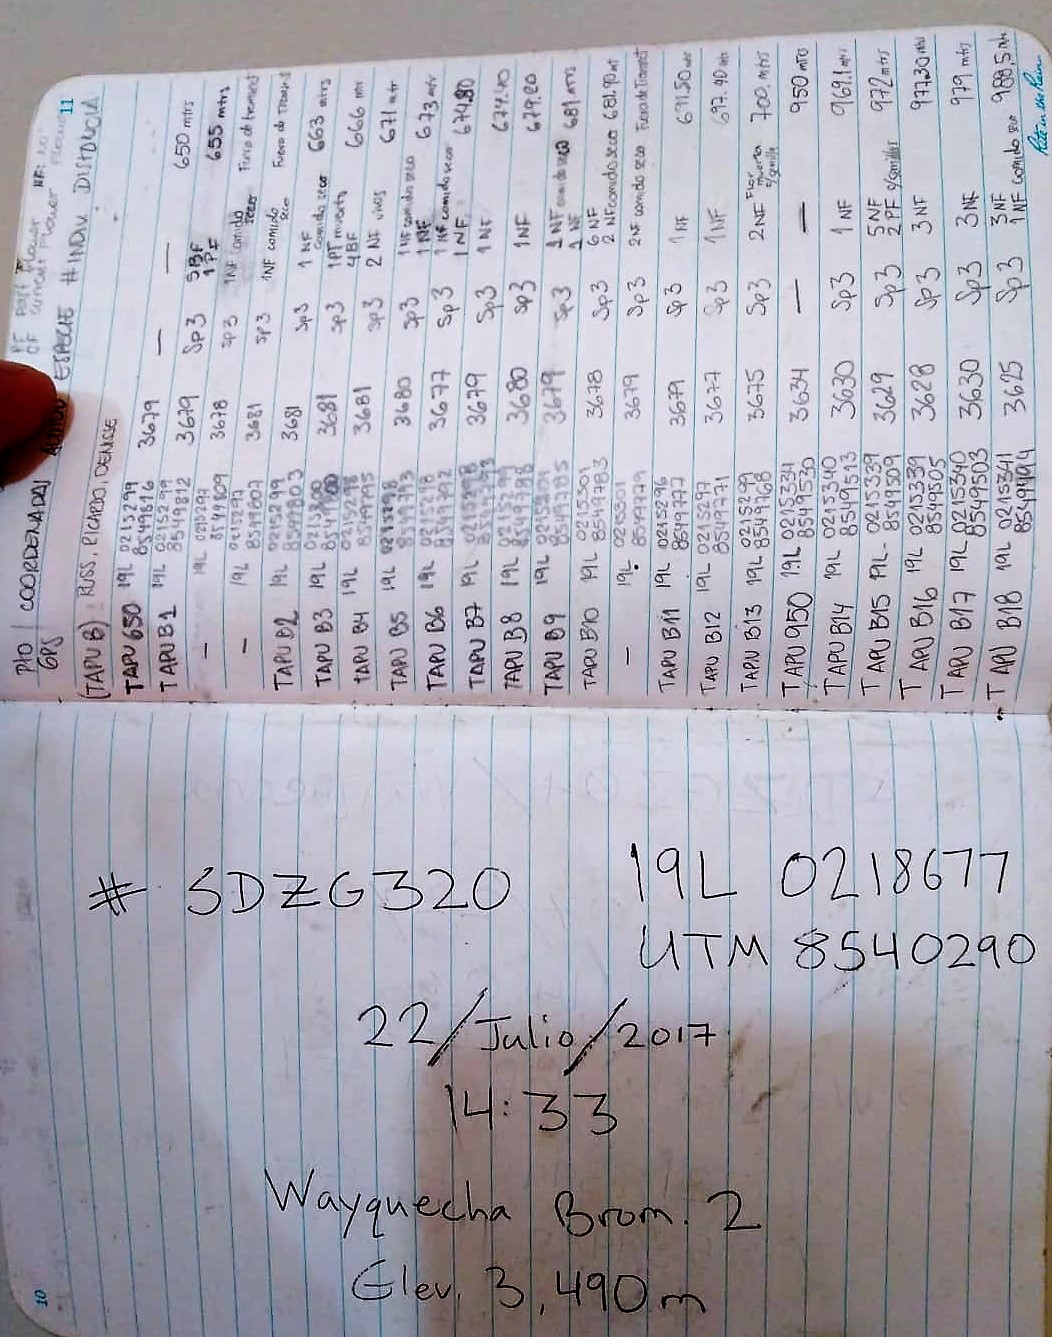 10
# 3DZG320
19L 0218677
UTM 8540290
22/Julio/2017
14:33
Wayquecha Brom. 2
Elev. 3,490m
11
PTO GPS COORDENADAS ESPECIE # INDIV DISTANCIA
(TAPU B): RUSS, PICARDO, DENISSE
TAPU 650 19L 0215299 8549816 3679 — — 650 mtrs
TAPU B1 19L 0215299 8549812 3679 Sp3 5BF 1PF 655 mtrs
— 19L 0215297 8549809 3678 sp3 1NF comido seco Fuera de transect
— 19L 0215297 8549807 3681 sp3 1NF comido seco Fuera de Transect
TAPU B2 19L 0215299 8549803 3681 sp3 1 NF comido seco 663 mtrs
TAPU B3 19L 3681 sp3 1PF muerto 4BF 666 mtr
TAPU B4 19L 0215298 8549795 3681 sp3 2 NF vivos 671 mtr
TAPU B5 19L 0215298 8549793 3680 sp3 1NF comido seco 1NF 673 mtr
TAPU B6 19L 0215298 8549792 3677 Sp3 1NF comido seco 1NF 674.80
TAPU B7 19L 3679 Sp3 1NF
TAPU B8 19L 8549788 3680 sp3 1NF 679.20
TAPU B9 19L 8549785 3679 sp3 1NF comido seco 1 NF 681 mtrs
TAPU B10 19L 0215301 8549783 3678 Sp3 6 NF 2 NF comido seco 681,90 mt
— 19L 8549779 3679 Sp3 2NF comido seco Fuera de Transect
TAPU B11 19L 0215296 8549777 3679 Sp3 1 NF 691,50 mtr
TAPU B12 19L 0215297 8549771 3677 Sp3 1NF 697.90 mtr
TAPU B13 19L 0215299 8549768 3675 Sp3 2NF Flor muerta c/semilla 700, mtrs
TAPU 950 19L 0215334 8549530 3634 — — 950 mtrs
TAPU B14 19L 0215340 8549513 3630 Sp3 1 NF 969.1 mtr
TAPU B15 19L 0215339 8549509 3629 Sp3 5NF 2 PF c/semillas 972 mtrs
TAPU B16 19L 0215339 8549505 3628 Sp3 3 NF 977,30 mtrs
TAPU B17 19L 0215340 8549503 3630 Sp3 3 NF 979 mtrs
TAPU B18 19L 0215341 8549494 3625 Sp3 3 NF 1 NF comido seco 988,5 mtr
Rite in the Rain